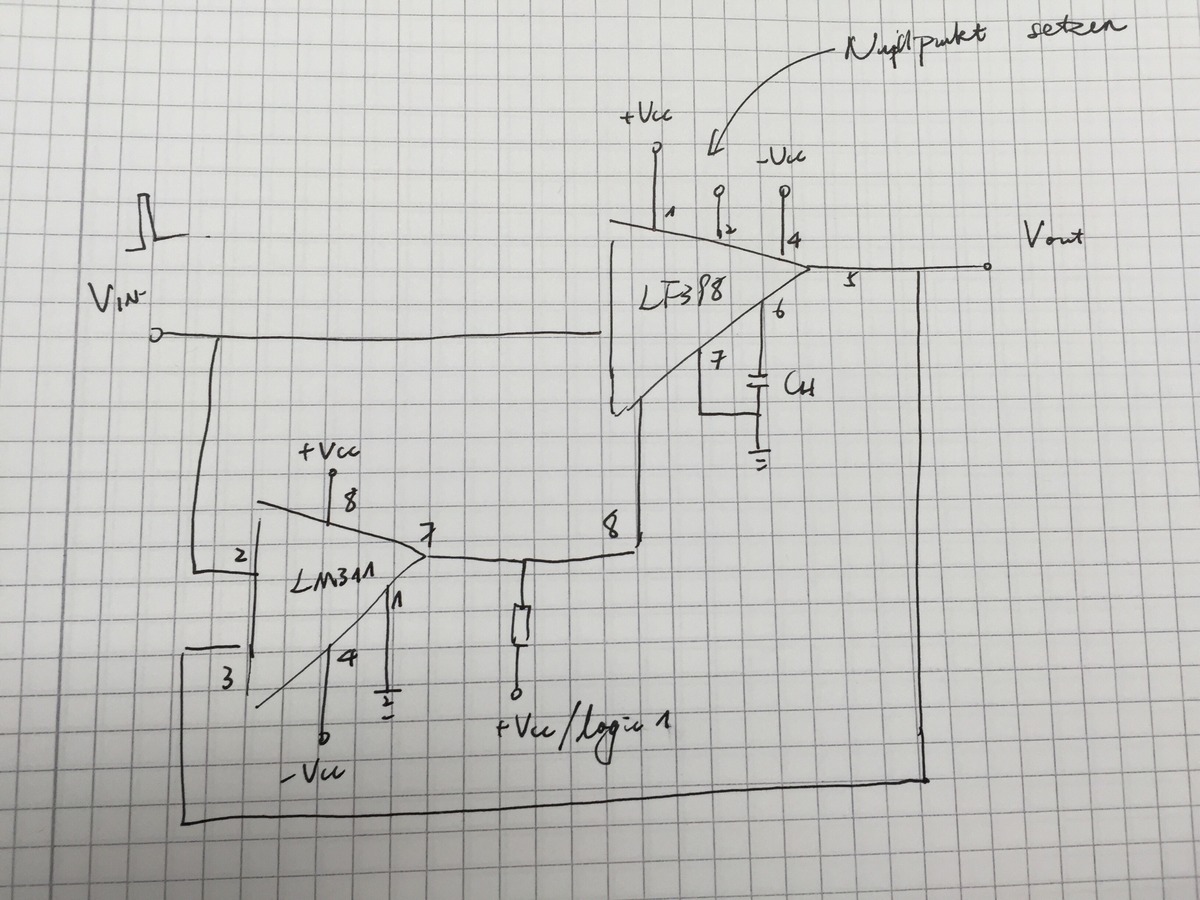 Nullpunkt setzen
+Vcc
-Vcc
1
2
4
Vout
LF398
5
VIN
6
7
CH
+Vcc
8
7
8
2
LM311
1
4
3
+Vcc/logic 1
-Vcc